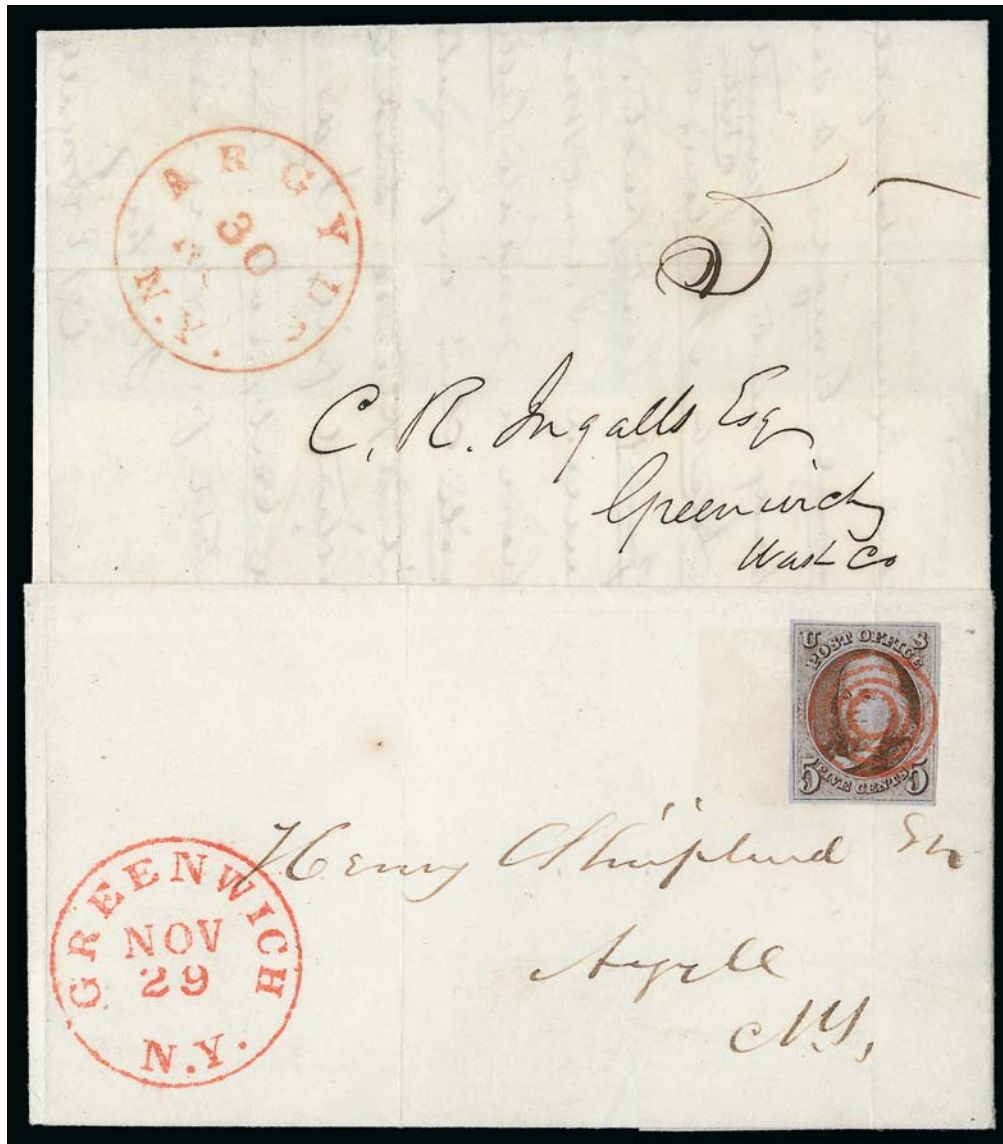 ARGYLE
30
N.Y.
5
C. R. Ingalls Esq
Greenwich
Wash Co
U S
POST OFFICE
5 FIVE CENTS 5
Henry Shipland Esq
Argyle
N.Y.
GREENWICH
NOV
29
N.Y.